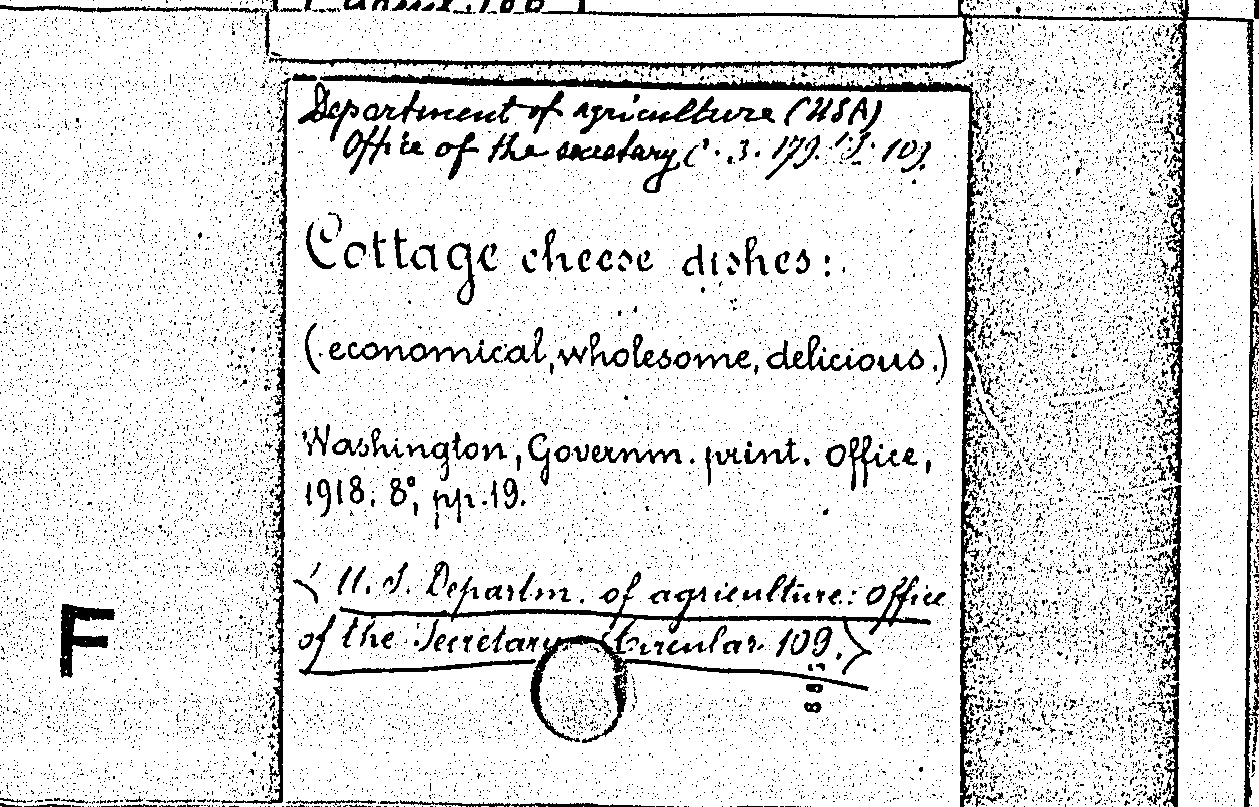 Department of agriculture (USA)
Office of the secretary C. 3. 179.
Cottage cheese dishes:
(economical, wholesome, delicious.)
Washington, Governm. print. office,
1918. 8°, pp. 19.
< U. S. Departm. of agriculture: office
of the Secretary Circular 109.>
F